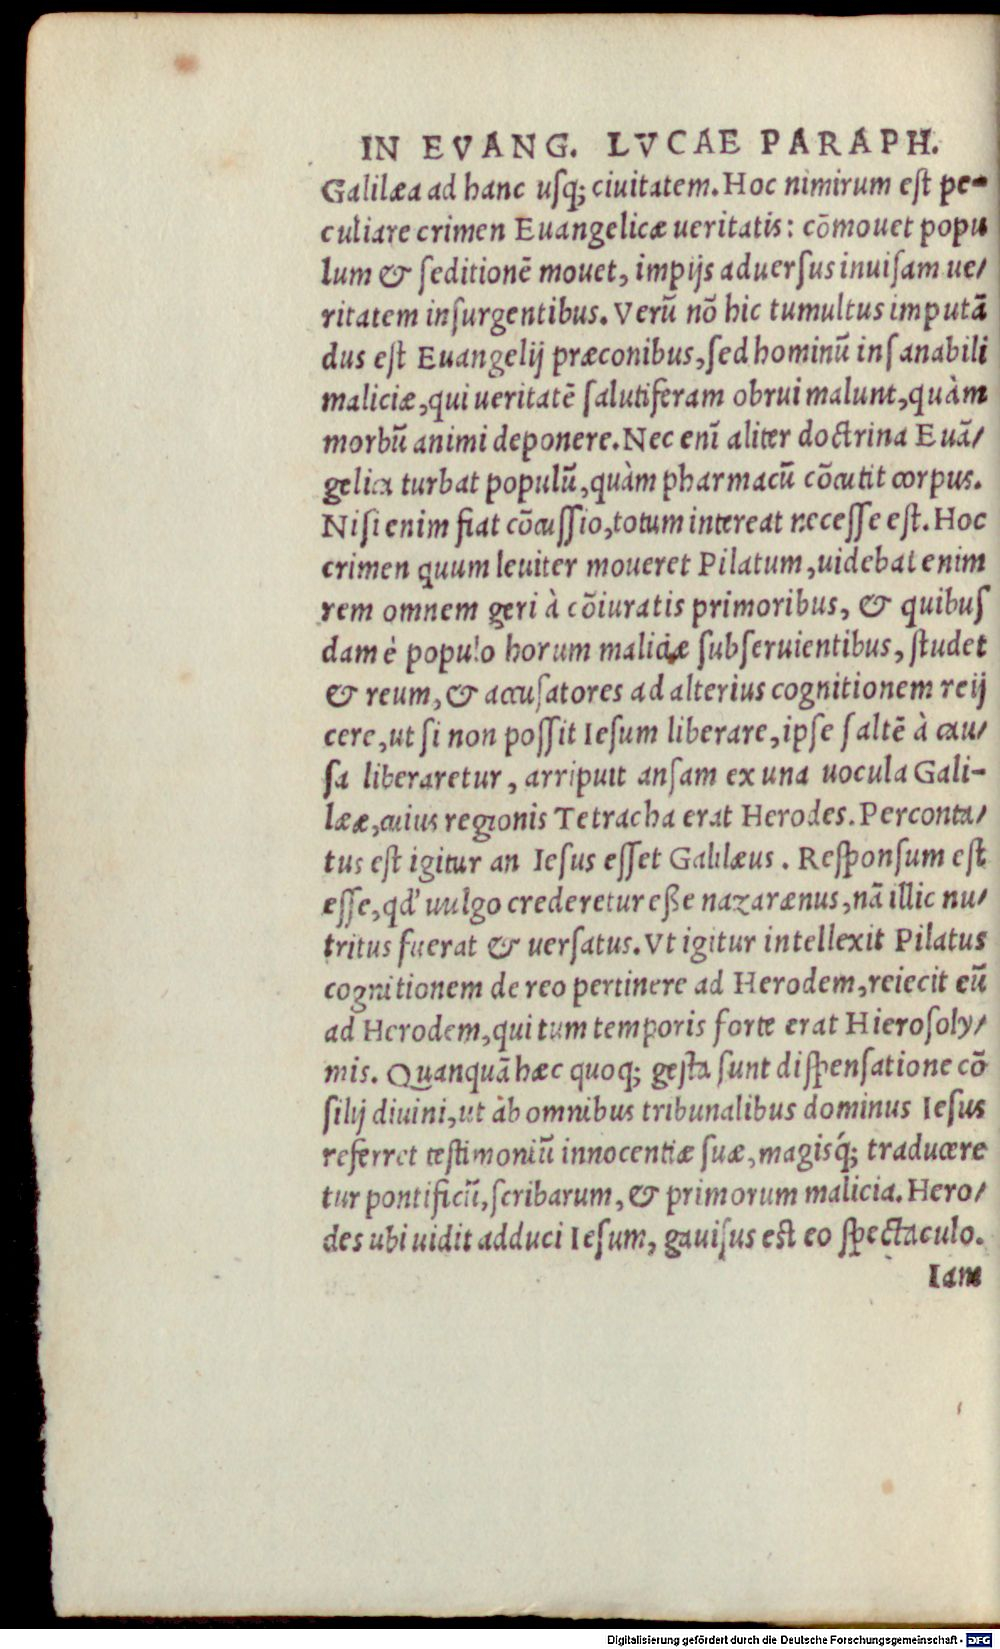 IN EVANG. LVCAE PARAPH.
Galilæa ad hanc uſq; ciuitatem. Hoc nimirum eſt pe-
culiare crimen Euangelicæ ueritatis: cōmouet popu
lum & ſeditionē mouet, impijs aduerſus inuiſam ue/
ritatem inſurgentibus. Verū nō hic tumultus imputā
dus eſt Euangelij præconibus, ſed hominū inſanabili
maliciæ, qui ueritatē ſalutiferam obrui malunt, quàm
morbū animi deponere. Nec enī aliter doctrina Euā/
gelica turbat populū, quàm pharmacū cōcutit corpus.
Niſi enim fiat cōcuſſio, totum intereat neceſſe eſt. Hoc
crimen quum leuiter moueret Pilatum, uidebat enim
rem omnem geri à cōiuratis primoribus, & quibuſ
dam è populo horum maliciæ ſubſeruientibus, ſtudet
& reum, & accuſatores ad alterius cognitionem reij
cere, ut ſi non poſſit Ieſum liberare, ipſe ſaltē à cau/
ſa liberaretur, arripuit anſam ex una uocula Gali-
lææ, cuius regionis Tetracha erat Herodes. Perconta/
tus eſt igitur an Ieſus eſſet Galilæus. Reſponſum eſt
eſſe, qd' uulgo crederetur eße nazarænus, nā illic nu/
tritus fuerat & uerſatus. Vt igitur intellexit Pilatus
cognitionem de reo pertinere ad Herodem, reiecit eū
ad Herodem, qui tum temporis forte erat Hieroſoly/
mis. Quanquā hæc quoq; geſta ſunt diſpenſatione cō
ſilij diuini, ut àb omnibus tribunalibus dominus Ieſus
referret teſtimoniū innocentiæ ſuæ, magisq́; traducere
tur pontificū, ſcribarum, & primorum malicia. Hero/
des ubi uidit adduci Ieſum, gauiſus eſt eo ſpectaculo.
Iam
Digitalisierung gefördert durch die Deutsche Forschungsgemeinschaft - DFG